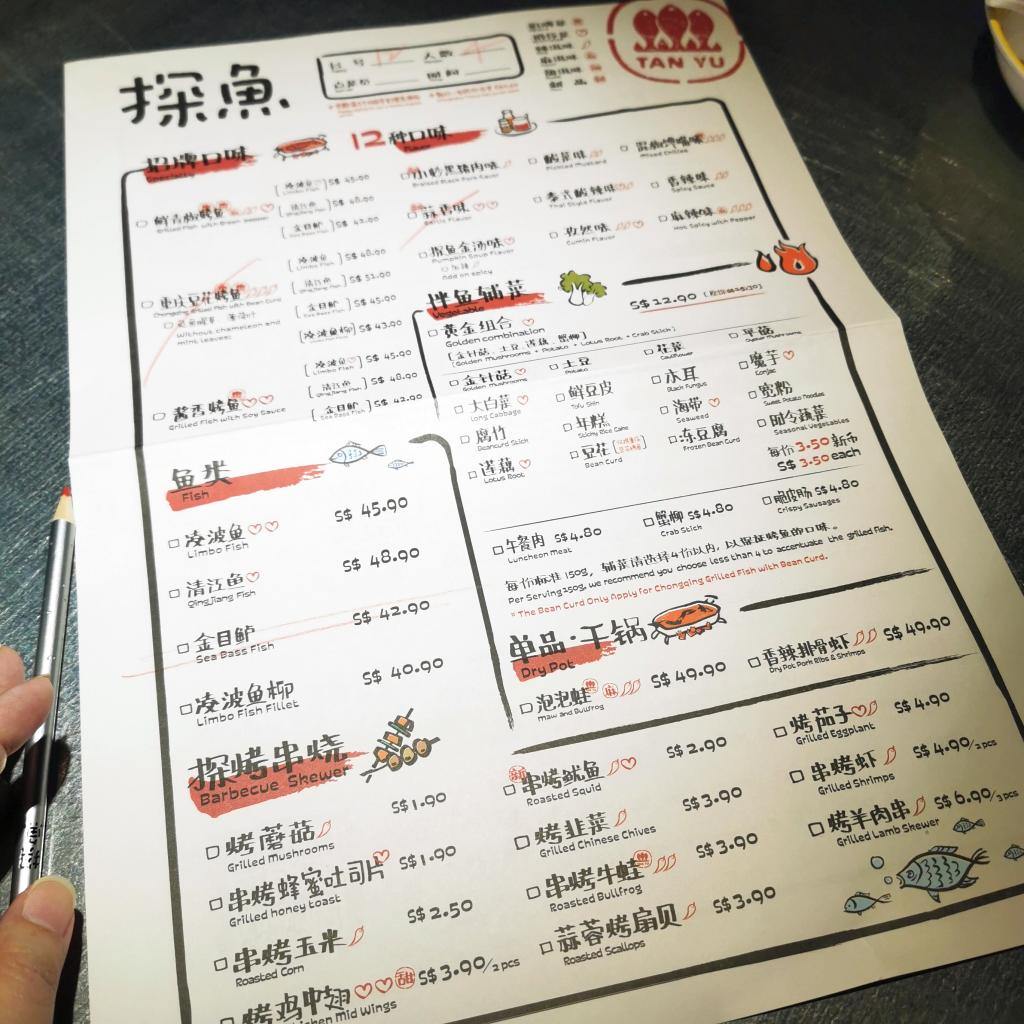 探魚
台号 12 人数 4
TAN YU
招牌口味
Specialty
12种口味
Flavor
鲜青椒烤鱼
Grilled Fish with Green Pepper
[凌波鱼 Limbo Fish] S$ 45.90
[清江鱼 Qingjiang Fish] S$ 48.90
[金目鲈 Sea Bass Fish] S$ 42.90
重庆豆花烤鱼
Chongqing Grilled Fish with Bean Curd
Without chameleon and
mint leaves
[凌波鱼 Limbo Fish] S$ 48.90
[清江鱼 Qingjiang Fish] S$ 51.90
[金目鲈 Sea Bass Fish] S$ 45.90
[凌波鱼柳] S$ 43.90
酱香烤鱼
Grilled Fish with Soy Sauce
[凌波鱼 Limbo Fish] S$ 45.90
[清江鱼 Qingjiang Fish] S$ 48.90
[金目鲈 Sea Bass Fish] S$ 42.90
黑猪肉味
Braised Black Pork Flavor
酸菜味
Pickled Mustard
Mixed Chilies
蒜香味
Garlic Flavor
泰式酸辣味
Thai Style Flavor
香辣味
Spicy Sauce
探鱼金汤味
Pumpkin Soup Flavor
加辣
Add on spicy
孜然味
Cumin Flavor
麻辣味
Hot Spicy with Pepper
拌鱼辅菜
Vegetable
黄金组合
Golden combination
S$ 12.90
[金针菇、土豆、莲藕、蟹柳]
(Golden Mushrooms + Potato + Lotus Root + Crab Stick)
金针菇
Golden Mushrooms
土豆
Potato
花菜
Cauliflower
平菇
Oyster Mushrooms
大白菜
Long Cabbage
鲜豆皮
Tofu Skin
木耳
Black Fungus
魔芋
Konjac
腐竹
Beancurd Stick
年糕
Sticky Rice Cake
海带
Seaweed
宽粉
Sweet Potato Noodles
莲藕
Lotus Root
豆花
Bean Curd
冻豆腐
Frozen Bean Curd
时令蔬菜
Seasonal Vegetables
每份 3.50 新币
S$ 3.50 each
午餐肉 S$4.80
Luncheon Meat
蟹柳 S$4.80
Crab Stick
脆皮肠 S$4.80
Crispy Sausages
每份标准150g, 辅菜请选择4份以内, 以保证烤鱼的口味。
Per Serving 150g, we recommend you choose less than 4 to accentuate the grilled fish.
* The Bean Curd Only Apply for Chongqing Grilled Fish with Bean Curd.
鱼类
Fish
凌波鱼 S$ 45.90
Limbo Fish
清江鱼 S$ 48.90
Qingjiang Fish
金目鲈 S$ 42.90
Sea Bass Fish
凌波鱼柳 S$ 40.90
Limbo Fish Fillet
单品·干锅
Dry Pot
泡泡蛙 S$ 49.90
Maw and Bullfrog
香辣排骨虾 S$ 49.90
Dry Pot Pork Ribs & Shrimps
探烤串烧
Barbecue Skewer
烤蘑菇 S$1.90
Grilled Mushrooms
串烤蜂蜜吐司片 S$1.90
Grilled honey toast
串烤玉米 S$ 2.50
Roasted Corn
烤鸡中翅 甜 S$3.90/2pcs
Mid Wings
新 串烤鱿鱼 S$ 2.90
Roasted Squid
烤韭菜 S$3.90
Grilled Chinese Chives
串烤牛蛙 S$3.90
Roasted Bullfrog
蒜蓉烤扇贝 S$3.90
Roasted Scallops
烤茄子 S$ 4.90
Grilled Eggplant
串烤虾 S$ 4.90/2pcs
Grilled Shrimps
烤羊肉串 S$ 6.90/3pcs
Grilled Lamb Skewer